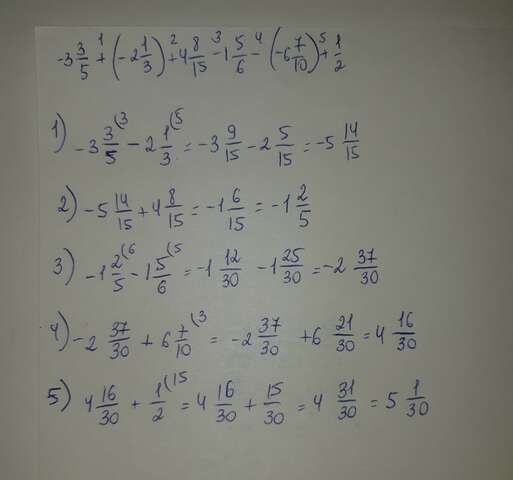 -3 3/5 +¹ (-2 1/3) +² 4 8/15 -³ 1 5/6 -⁴ (-6 7/10) +⁵ 1/2
1) -3 3/5 (3 - 2 1/3 (5 = -3 9/15 - 2 5/15 = -5 14/15
2) -5 14/15 + 4 8/15 = -1 6/15 = -1 2/5
3) -1 2/5 (6 - 1 5/6 (5 = -1 12/30 - 1 25/30 = -2 37/30
4) -2 37/30 + 6 7/10 (3 = -2 37/30 + 6 21/30 = 4 16/30
5) 4 16/30 + 1/2 (15 = 4 16/30 + 15/30 = 4 31/30 = 5 1/30